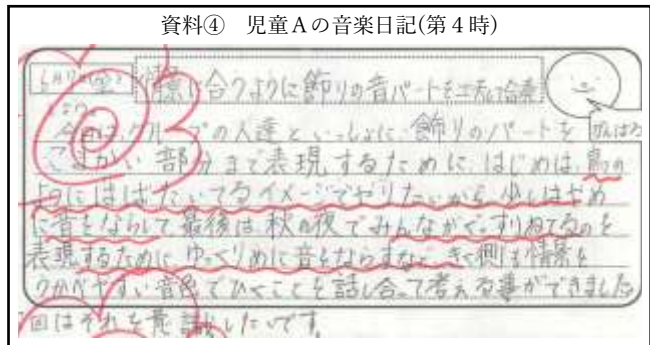 資料④ 児童Aの音楽日記(第4時)
情景に合うように飾りの音パートを工夫して合奏
今日は、グループの人達といっしょに、飾りのパートを
がんばろ
こまかい部分まで表現するために、はじめは、鳥の
ようにはばたいてるイメージでやりたいから少しはやめ
に音をならして最後は秋の夜でみんながぐっすりねてるのを
表現するために、ゆっくりめに音をならすなど、きく側も情景を
うかべやすい音色でひくことを話し合って考える事ができました
回はそれを意識したいです。